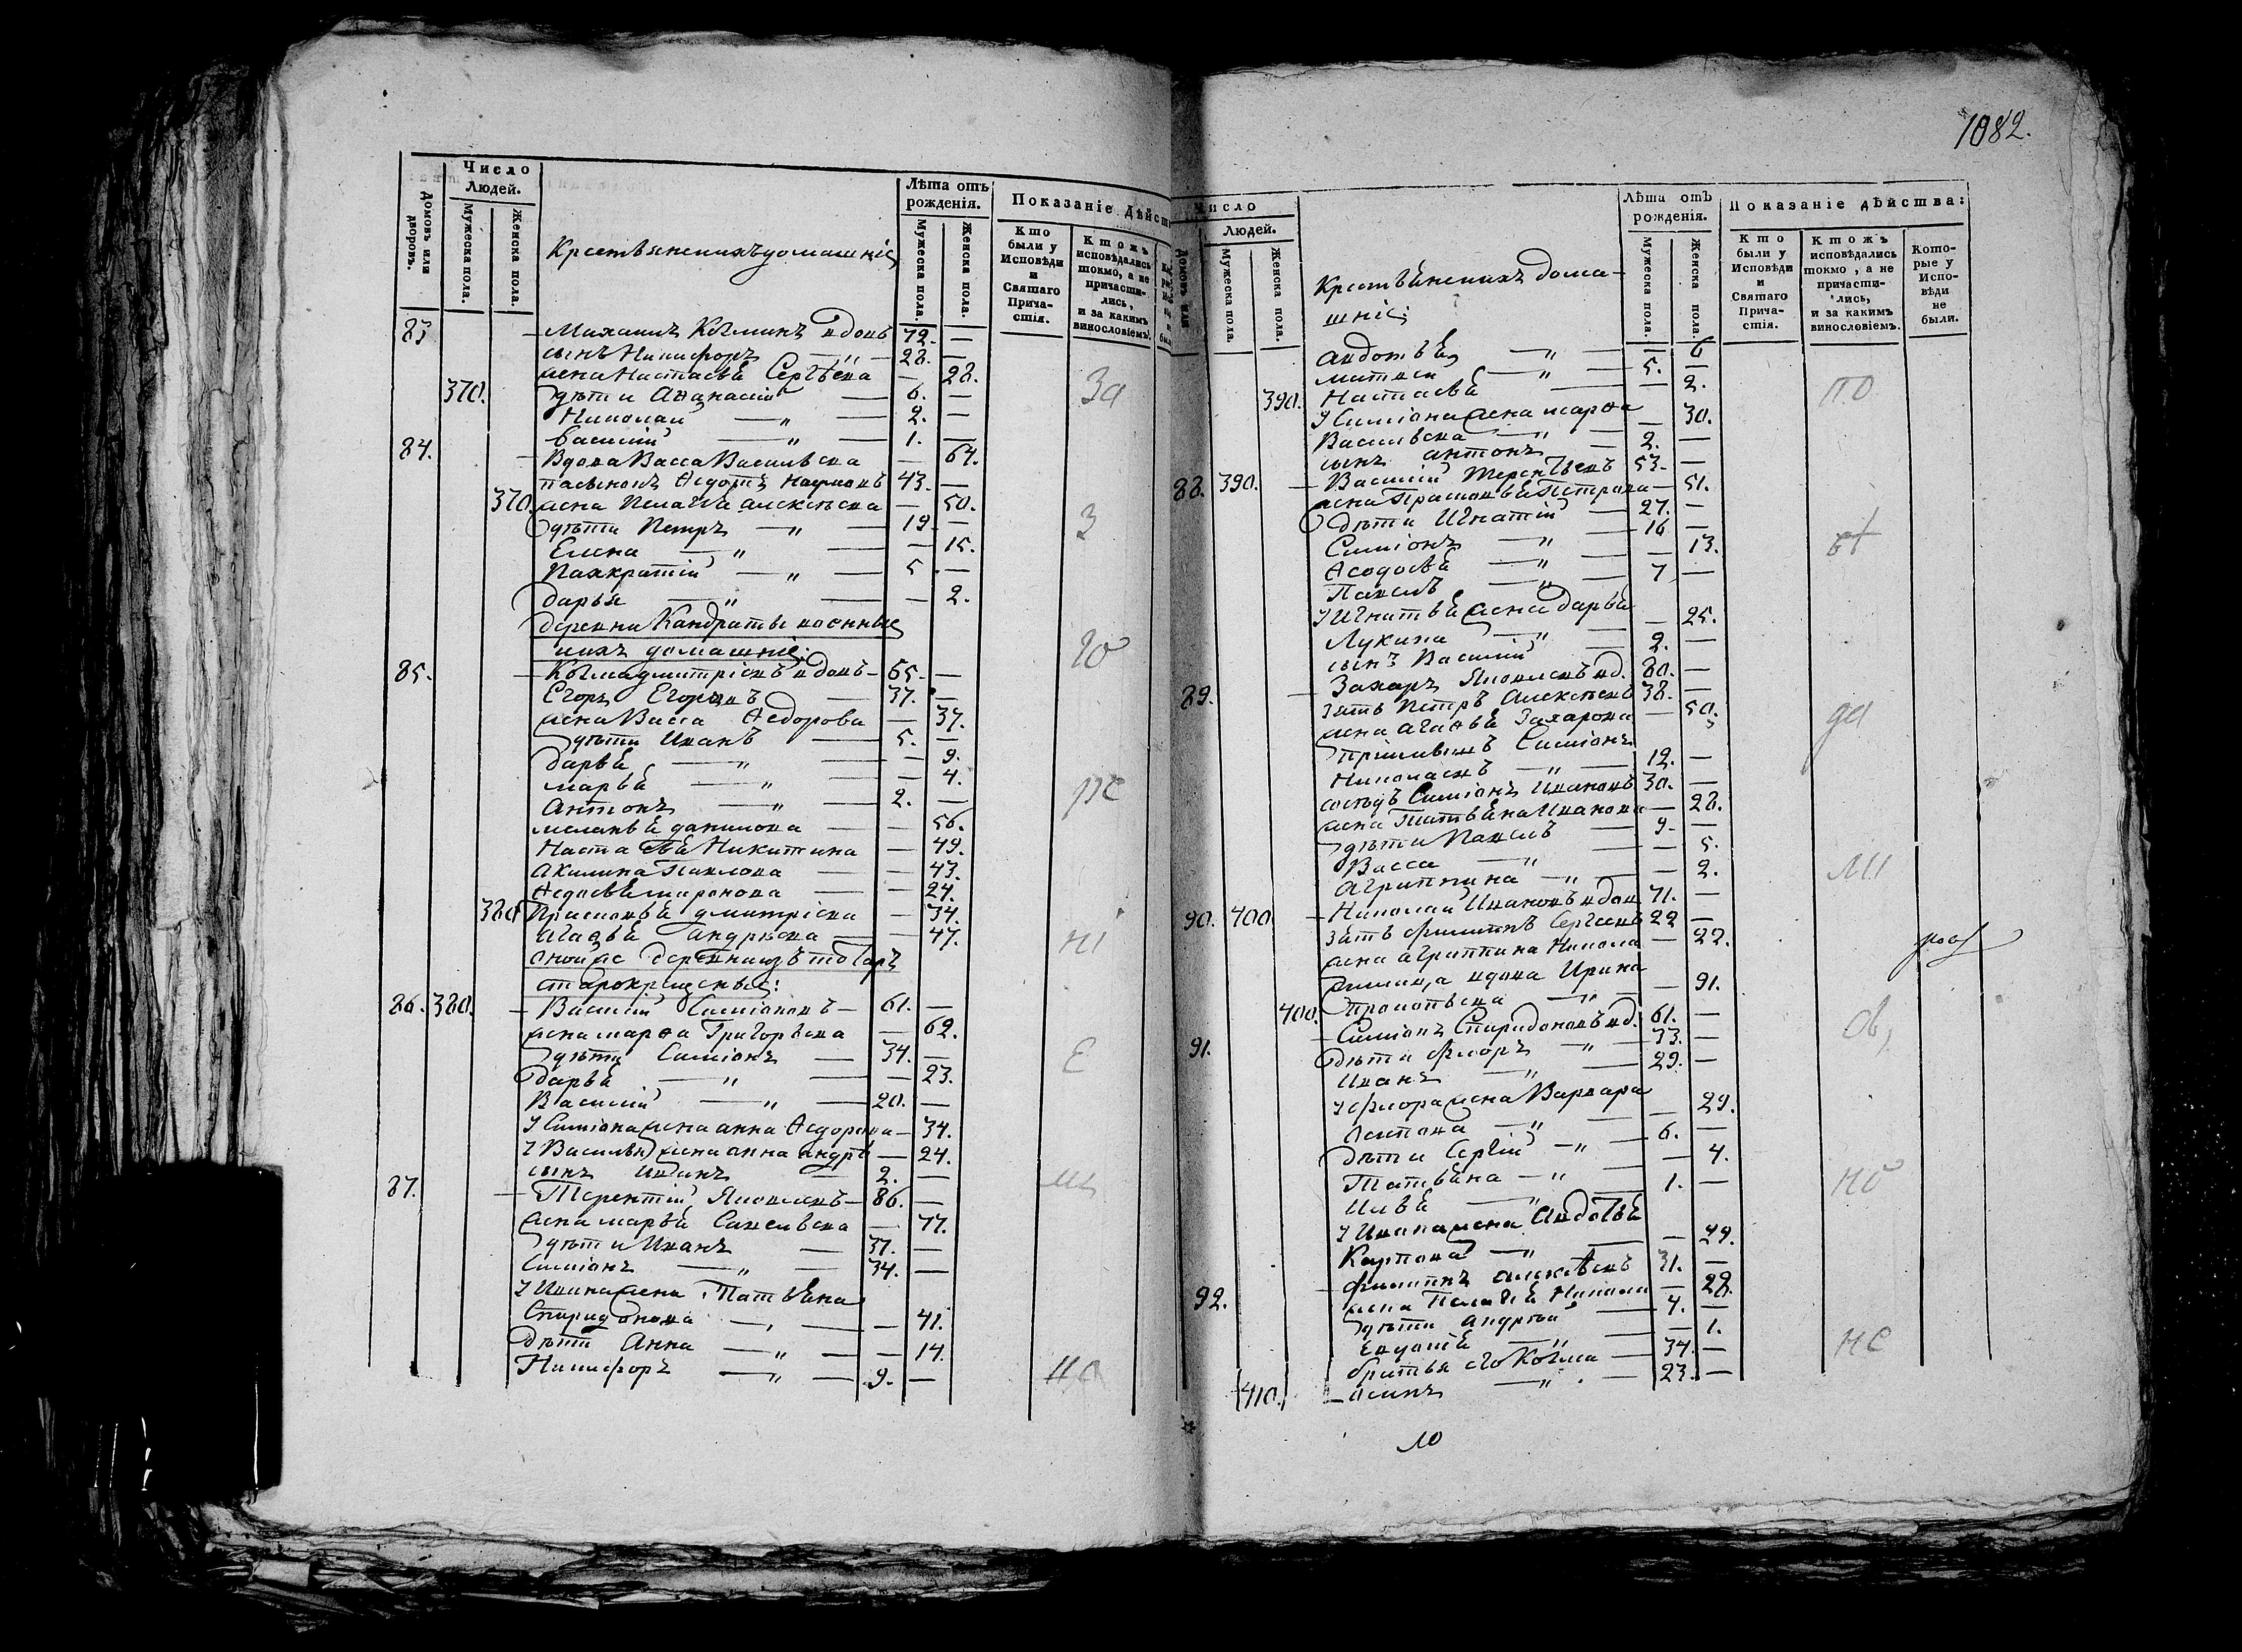 1082.
Число
Людей.
Домовъ или дворовъ.
Мужеска пола.
Женска пола.
Крестьянскихъ домашніе
Лѣта отъ
рожденія.
Мужеска пола.
Женска пола.
Показаніе дѣйст
Кто были у Исповѣди и Святаго Причастія.
Ктожъ исповѣдались токмо, а не причастились, и за какимъ винословіемъ.
83 Козминъ вдовъ 72. —
сынъ Никифоръ — 28. —
жена Настасья Сергѣева — 28.
370. дѣти Афанасій — 6. — За
Николай — 2. —
Василій — 1. —
84. Вдова Васса Васильева — 64.
пасынокъ Федотъ Наумовъ 43. —
370. жена Пелагѣя Алексѣева — 50.
дѣти Петръ — 19 — З
Елена — 15.
Панкратій — 5. —
Дарья — 2.
деревни Кандраты военные
ихъ домашніе: го
85. Козма Дмитріевъ вдовъ — 65. —
Егоръ Егоровъ 37. —
жена Васса Федорова — 37.
дѣти Иванъ — 5. —
Дарья — 9.
Марья — 4. ре
Антонъ — 2. —
Меланья Данилова — 56.
Настасья Никитина — 49.
Акилина Павлова — 43.
Федосья Миронова — 24.
380 Прасковья Дмитріева — 34.
Агафья Андрѣева — 47. ні
оной же деревни изъ татаръ
старокрещеные:
86. 380. Василій Симіоновъ — 61. —
жена Марфа Григорьева — 62.
дѣти Симіонъ — 34. — Е
Дарья — 23.
Василій — 20. —
У Симіона жена Анна Федорова — 34.
У Василья жена Анна Андрѣ — 24.
сынъ Иванъ — 2. —
87. Терентій Яковлевъ — 86. —
жена Марья Савельева — 77.
дѣти Иванъ — 37. —
Симіонъ — 34. —
У Ивана жена Татьяна
Спиридонова — 41.
дѣти Анна — 14.
Никифоръ — 9. —
Число
Людей.
Мужеска пола.
Женска пола.
Крестьянскихъ дома-
шніе:
Лѣта отъ
рожденія.
Мужеска пола.
Женска пола.
Показаніе дѣйства:
Кто были у Исповѣди и Святаго Причастія.
Ктожъ исповѣдались токмо, а не причастились, и за какимъ винословіемъ.
Которые у Исповѣди не были.
Авдотья — 6
Матвей — 5. —
390. Настасья — 2. по
У Симіона жена Марфа
Васильева — 30.
сынъ Антонъ 2. —
88. 390. Василій Терентьевъ 53. —
жена Прасковья Петрова — 51.
дѣти Игнатій — 27. —
Симіонъ — 16 —
Федосья — 13.
Павелъ — 7 —
У Игнатья жена Дарья
Лукина — 25.
сынъ Василій 2. —
89. Захаръ Яковлевъ вд. 80. —
зять Петръ Алексѣевъ 38. —
жена Агафья Захарова — 50. да
Симіонъ
Николаевъ — 12. —
сосѣдъ Симіонъ Ивановъ 30. —
жена Татьяна Иванова — 28.
дѣти Павелъ — 9. —
Васса — 5.
Агриппина — 2.
90. 400 Николай Ивановъ вдов 71. —
зять Филиппъ Сергѣевъ 22 —
жена Агриппина Никола — 22.
вдова Ирина
400. — 91.
91. Симіонъ Спиридоновъ вд. 61. —
дѣти Флоръ — 33. —
Иванъ — 29. —
У Флора жена Варвара
— 29.
дѣти Сергій — 6. —
Татьяна — 4.
Илья — 1. — но
У Ивана жена Авдотья
Карпова — 29.
92. Филиппъ Алексѣевъ 31. —
жена Пелагѣя Никола — 28.
дѣти Андрей — 4. —
— 1.
братья его Козма — 34. — не
410. Осипъ — 23. —